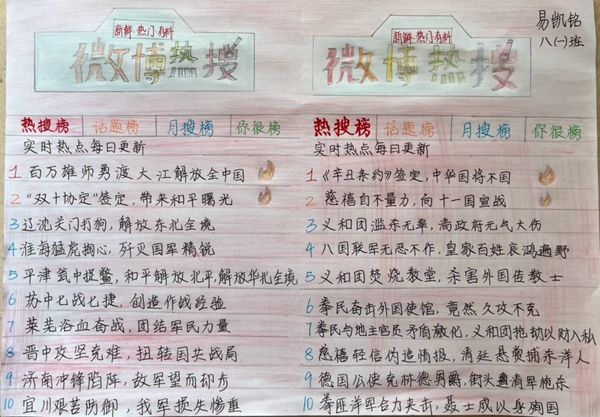 新鲜·热门·有料
微博热搜
热搜榜 话题榜 月搜榜 你很榜
实时热点每日更新
1 百万雄师勇渡大江解放全中国
2 “双十协定”签定,带来和平曙光
3 辽沈关门打狗,解放东北全境
4 淮海猛虎掏心,歼灭国军精锐
5 平津瓮中捉鳖,和平解放北平,解放华北全境
6 苏中七战七捷,创造作战经验
7 莱芜浴血奋战,团结军民力量
8 晋中攻坚克难,扭转国共战局
9 济南冲锋陷阵,敌军望而却步
10 宜川艰苦防御,我军损失惨重
易凯铭
八(一)班
新鲜·热门有料
微博热搜
热搜榜 话题榜 月搜榜 你很榜
实时热点每日更新
1 《辛丑条约》签定,中华国将不国
2 慈禧自不量力,向十一国宣战
3 义和团滥杀无辜,清政府元气大伤
4 八国联军无恶不作,皇家百姓哀鸿遍野
5 义和团焚烧教堂,杀害外国传教士
6 拳民奋击外国使馆,竟然久攻不克
7 拳民与地主官员矛盾激化,义和团抢劫以财入私
8 慈禧轻信伪造情报,清廷悬赏捕杀洋人
9 德国公使克林德男爵,街头遭清军枪杀
10 拳匪洋军合力夹击,聂士成以身殉国